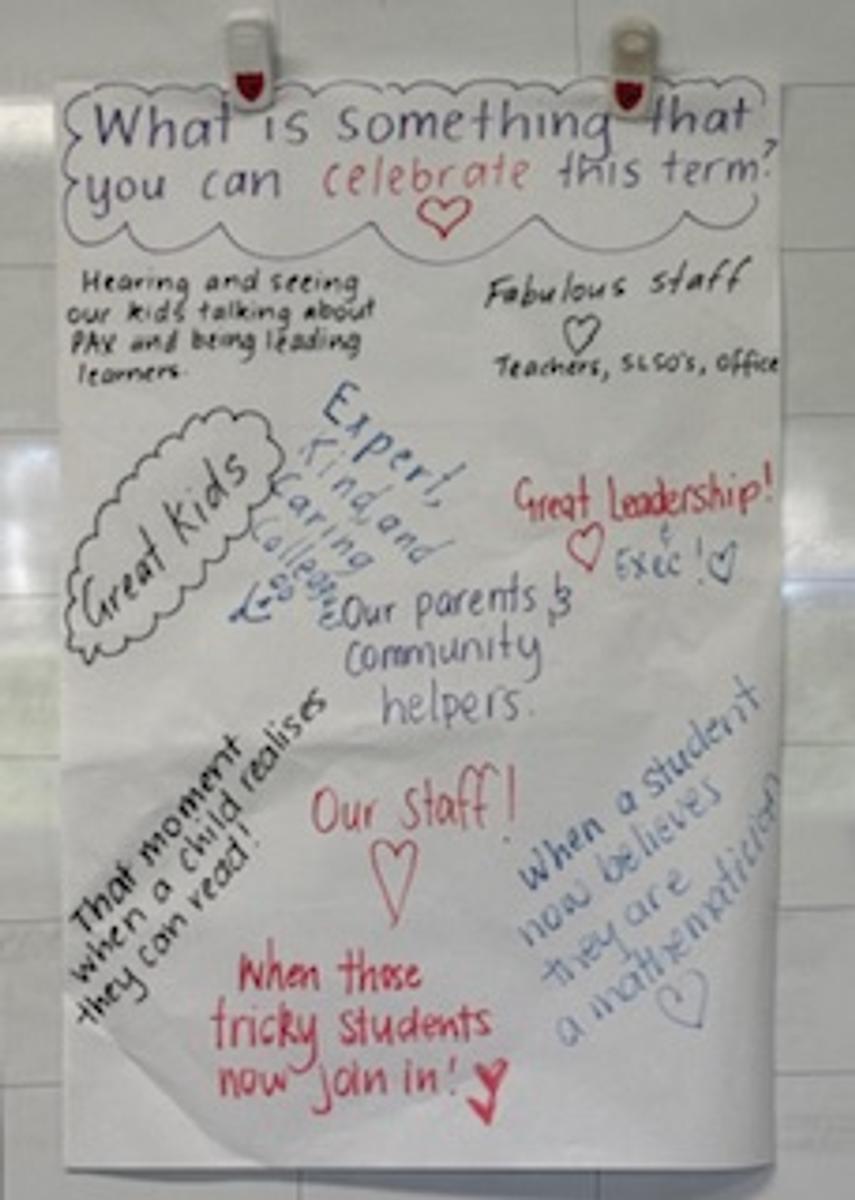 What is something that
you can celebrate this term?
Hearing and seeing
our kids talking about
PAX and being leading
learners.
Fabulous staff
Teachers, SLSO's, Office
Expert,
Kind, and
Caring
Great kids
Great Leadership!
& Exec!
Our parents &
community
helpers.
That moment
when a child realises
they can read!
Our staff!
When a student
now believes
they are
a mathematician
When those
tricky students
now join in!